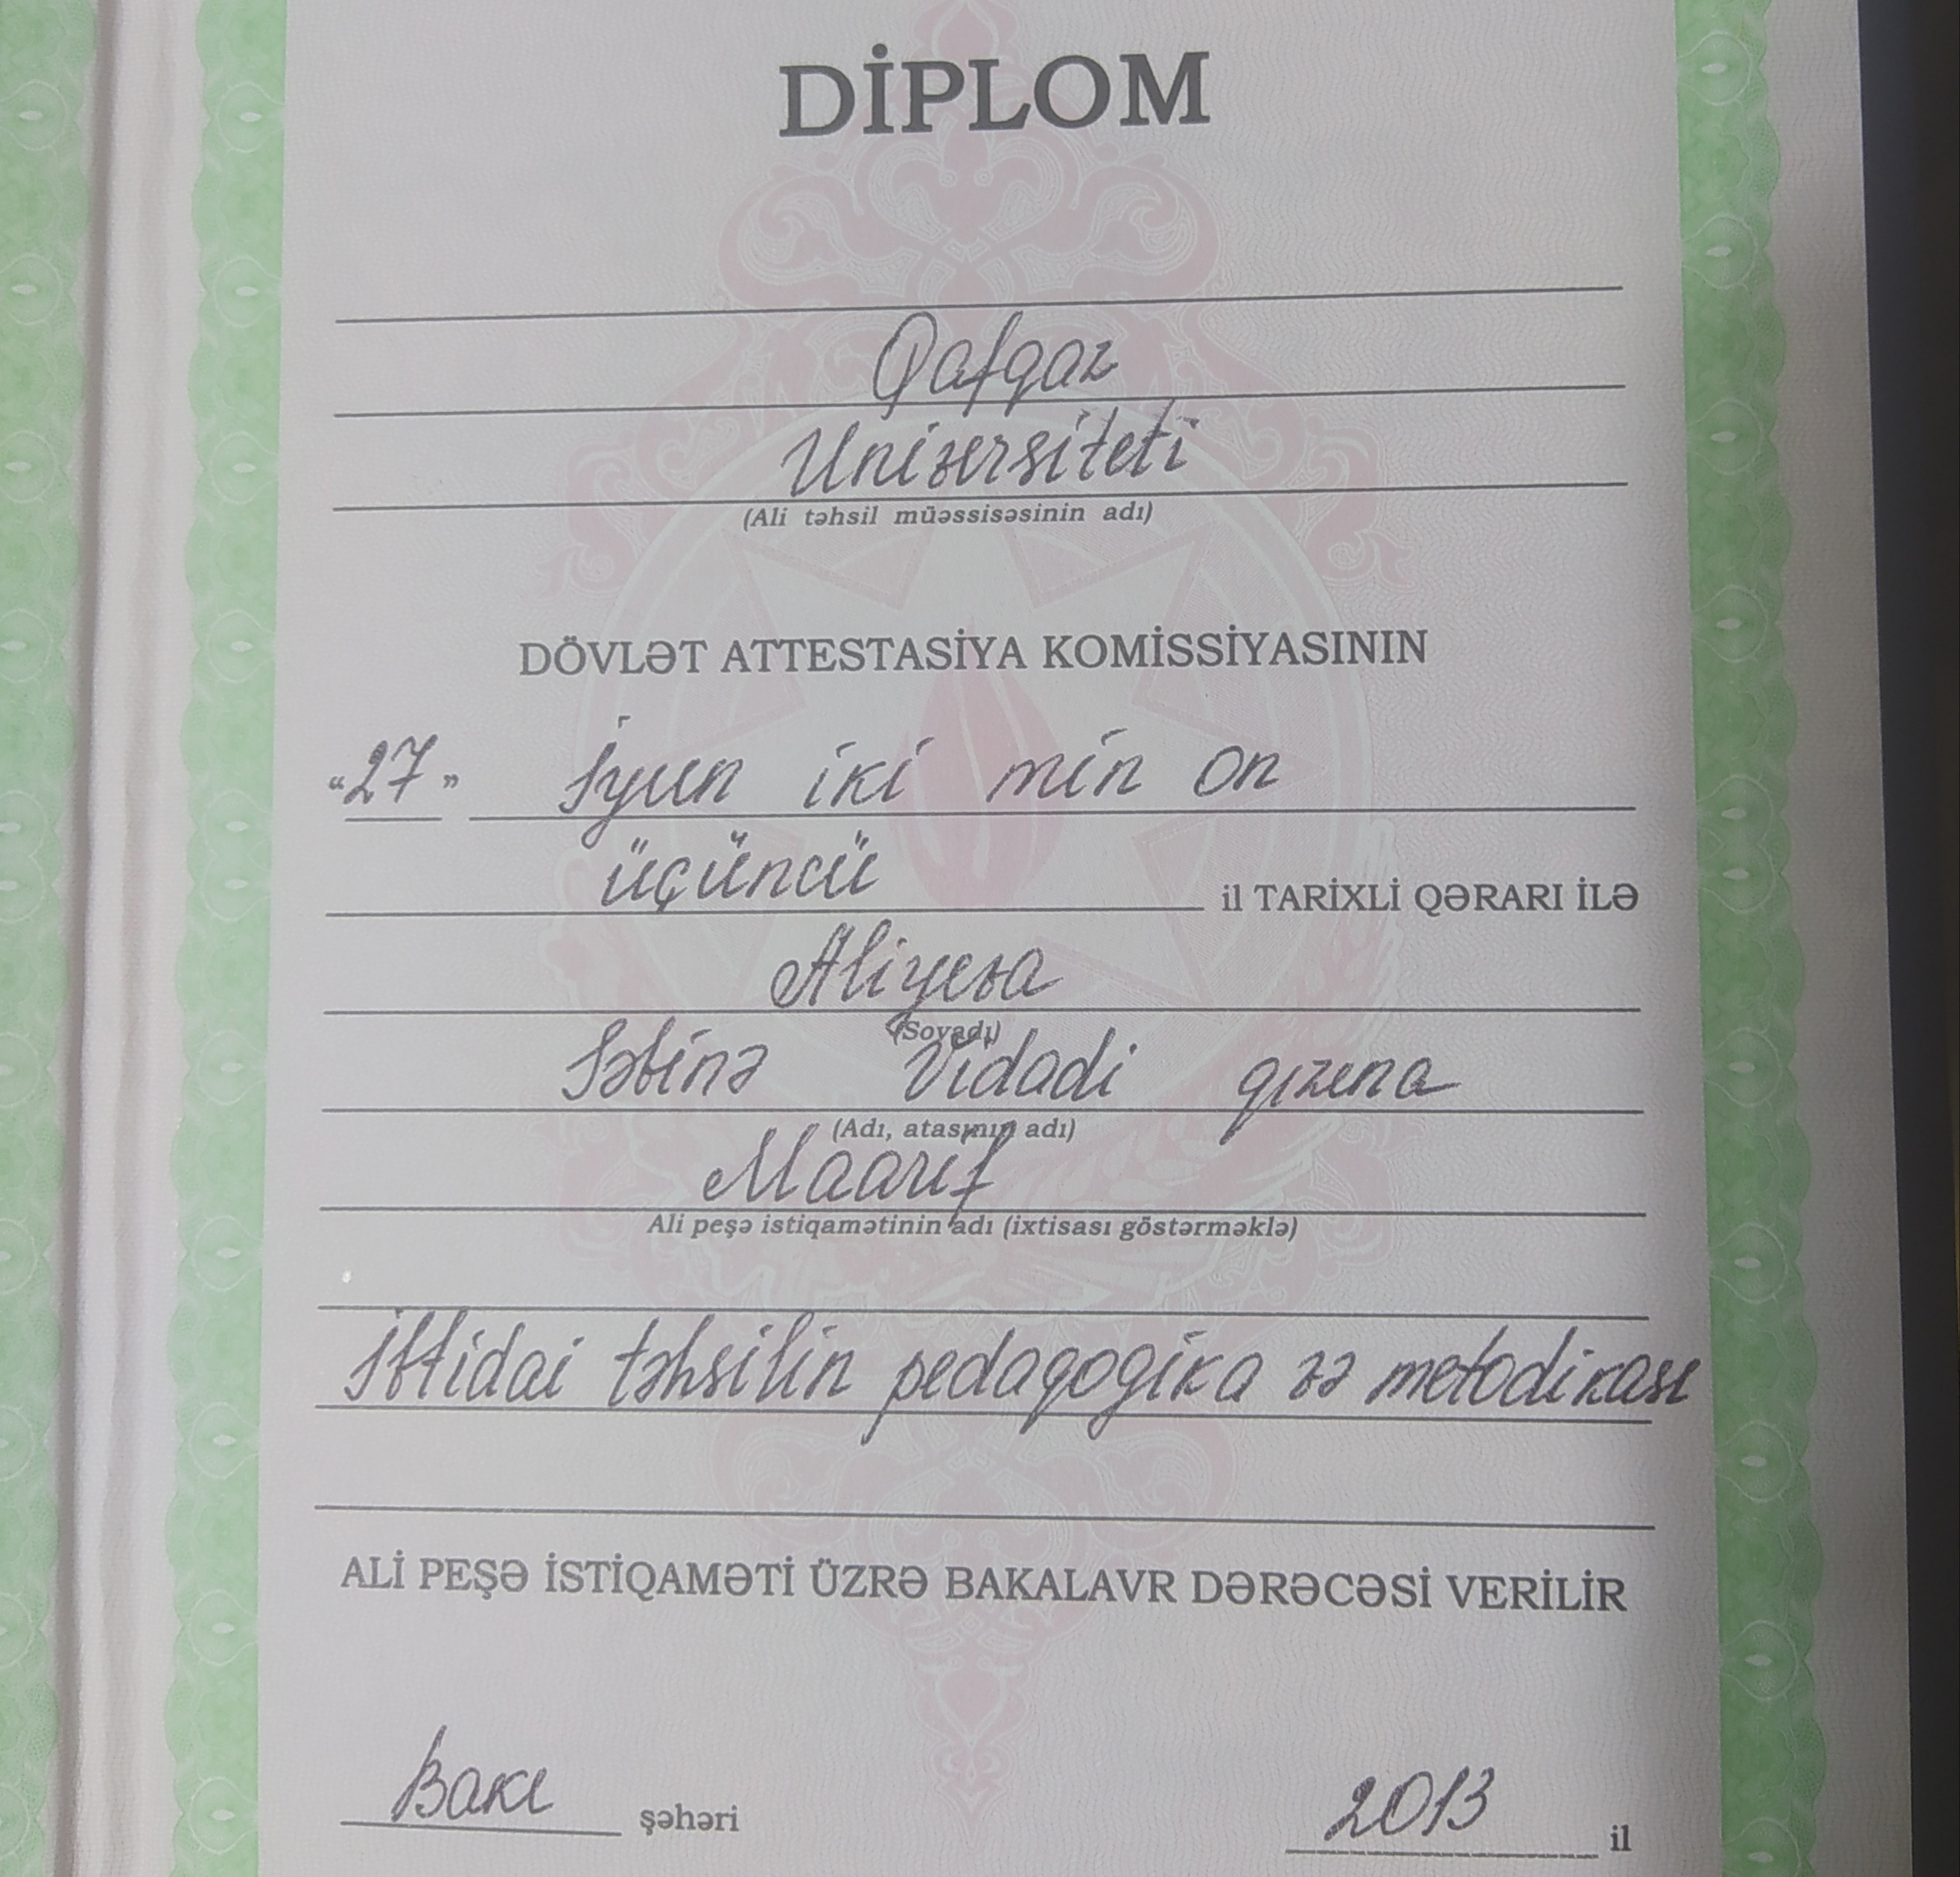 DİPLOM
Qafqaz
Universiteti
(Ali təhsil müəssisəsinin adı)
DÖVLƏT ATTESTASİYA KOMİSSİYASININ
"27" İyun iki min on
üçüncü il TARİXLİ QƏRARI İLƏ
Aliyeva
(Soyadı)
Səbinə Vidadi qızına
(Adı, atasının adı)
Maarif
Ali peşə istiqamətinin adı (ixtisası göstərməklə)
İbtidai təhsilin pedaqogika və metodikası
ALİ PEŞƏ İSTİQAMƏTİ ÜZRƏ BAKALAVR DƏRƏCƏSİ VERİLİR
Bakı şəhəri 2013 il